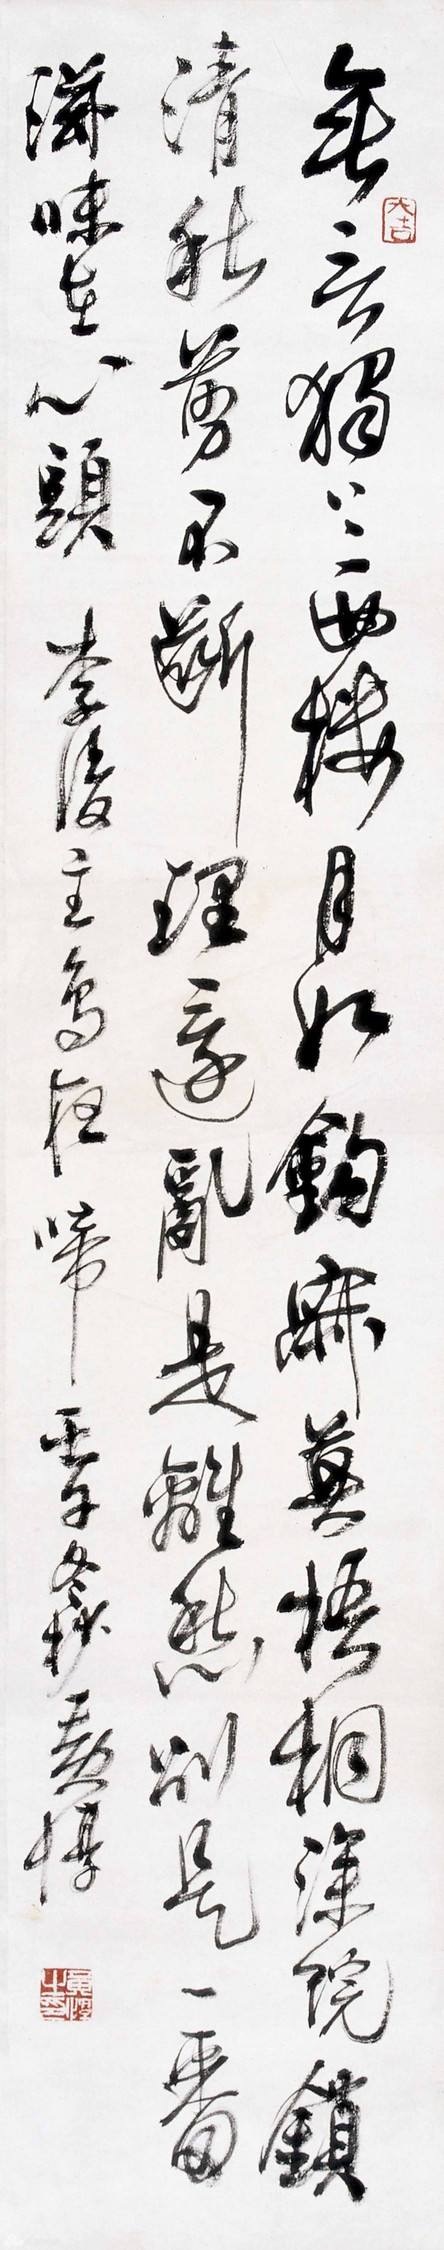 大吉
無言獨上西樓月如鉤寂寞梧桐深院鎖
清秋剪不斷理還亂是離愁別是一番
滋味在心頭 李後主烏夜啼 冬杪黃惇